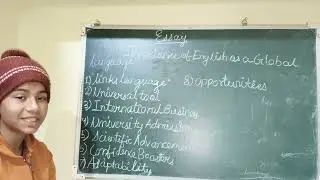 Essay
Importance of English as a Global
language
1) links language 8) Opportunities
2) Universal tool
3) International Business
4) University Admission
5) Scientific Advancement
6) Confidence Boosters
7) Adaptability